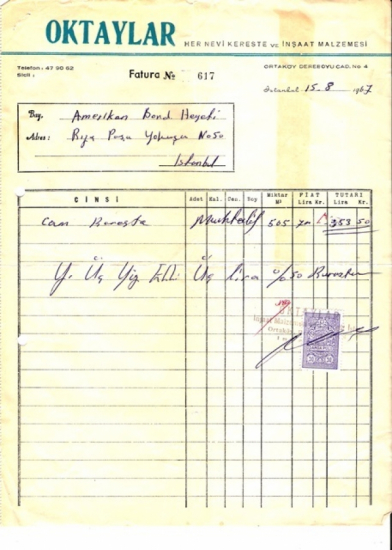 OKTAYLAR
HER NEVİ KERESTE ve İNŞAAT MALZEMESİ
Telefon: 47 90 62
Sicil :
Fatura № 617
ORTAKÖY DEREBOYU CAD. No 4
İstanbul 15-8-1967
Bay, Amerikan Bord Heyeti
Adres: Rıza Paşa Yokuşu No 50
İstanbul
CİNSİ Adet Kal. Gen. Boy Miktar M² FİAT Lira Kr. TUTARI Lira Kr.
Çam Kereste Muhtelif 505 70 353 50
Y. Üç Yüz Elli Üç Lira %50 Kuruştur
OKTAYLAR